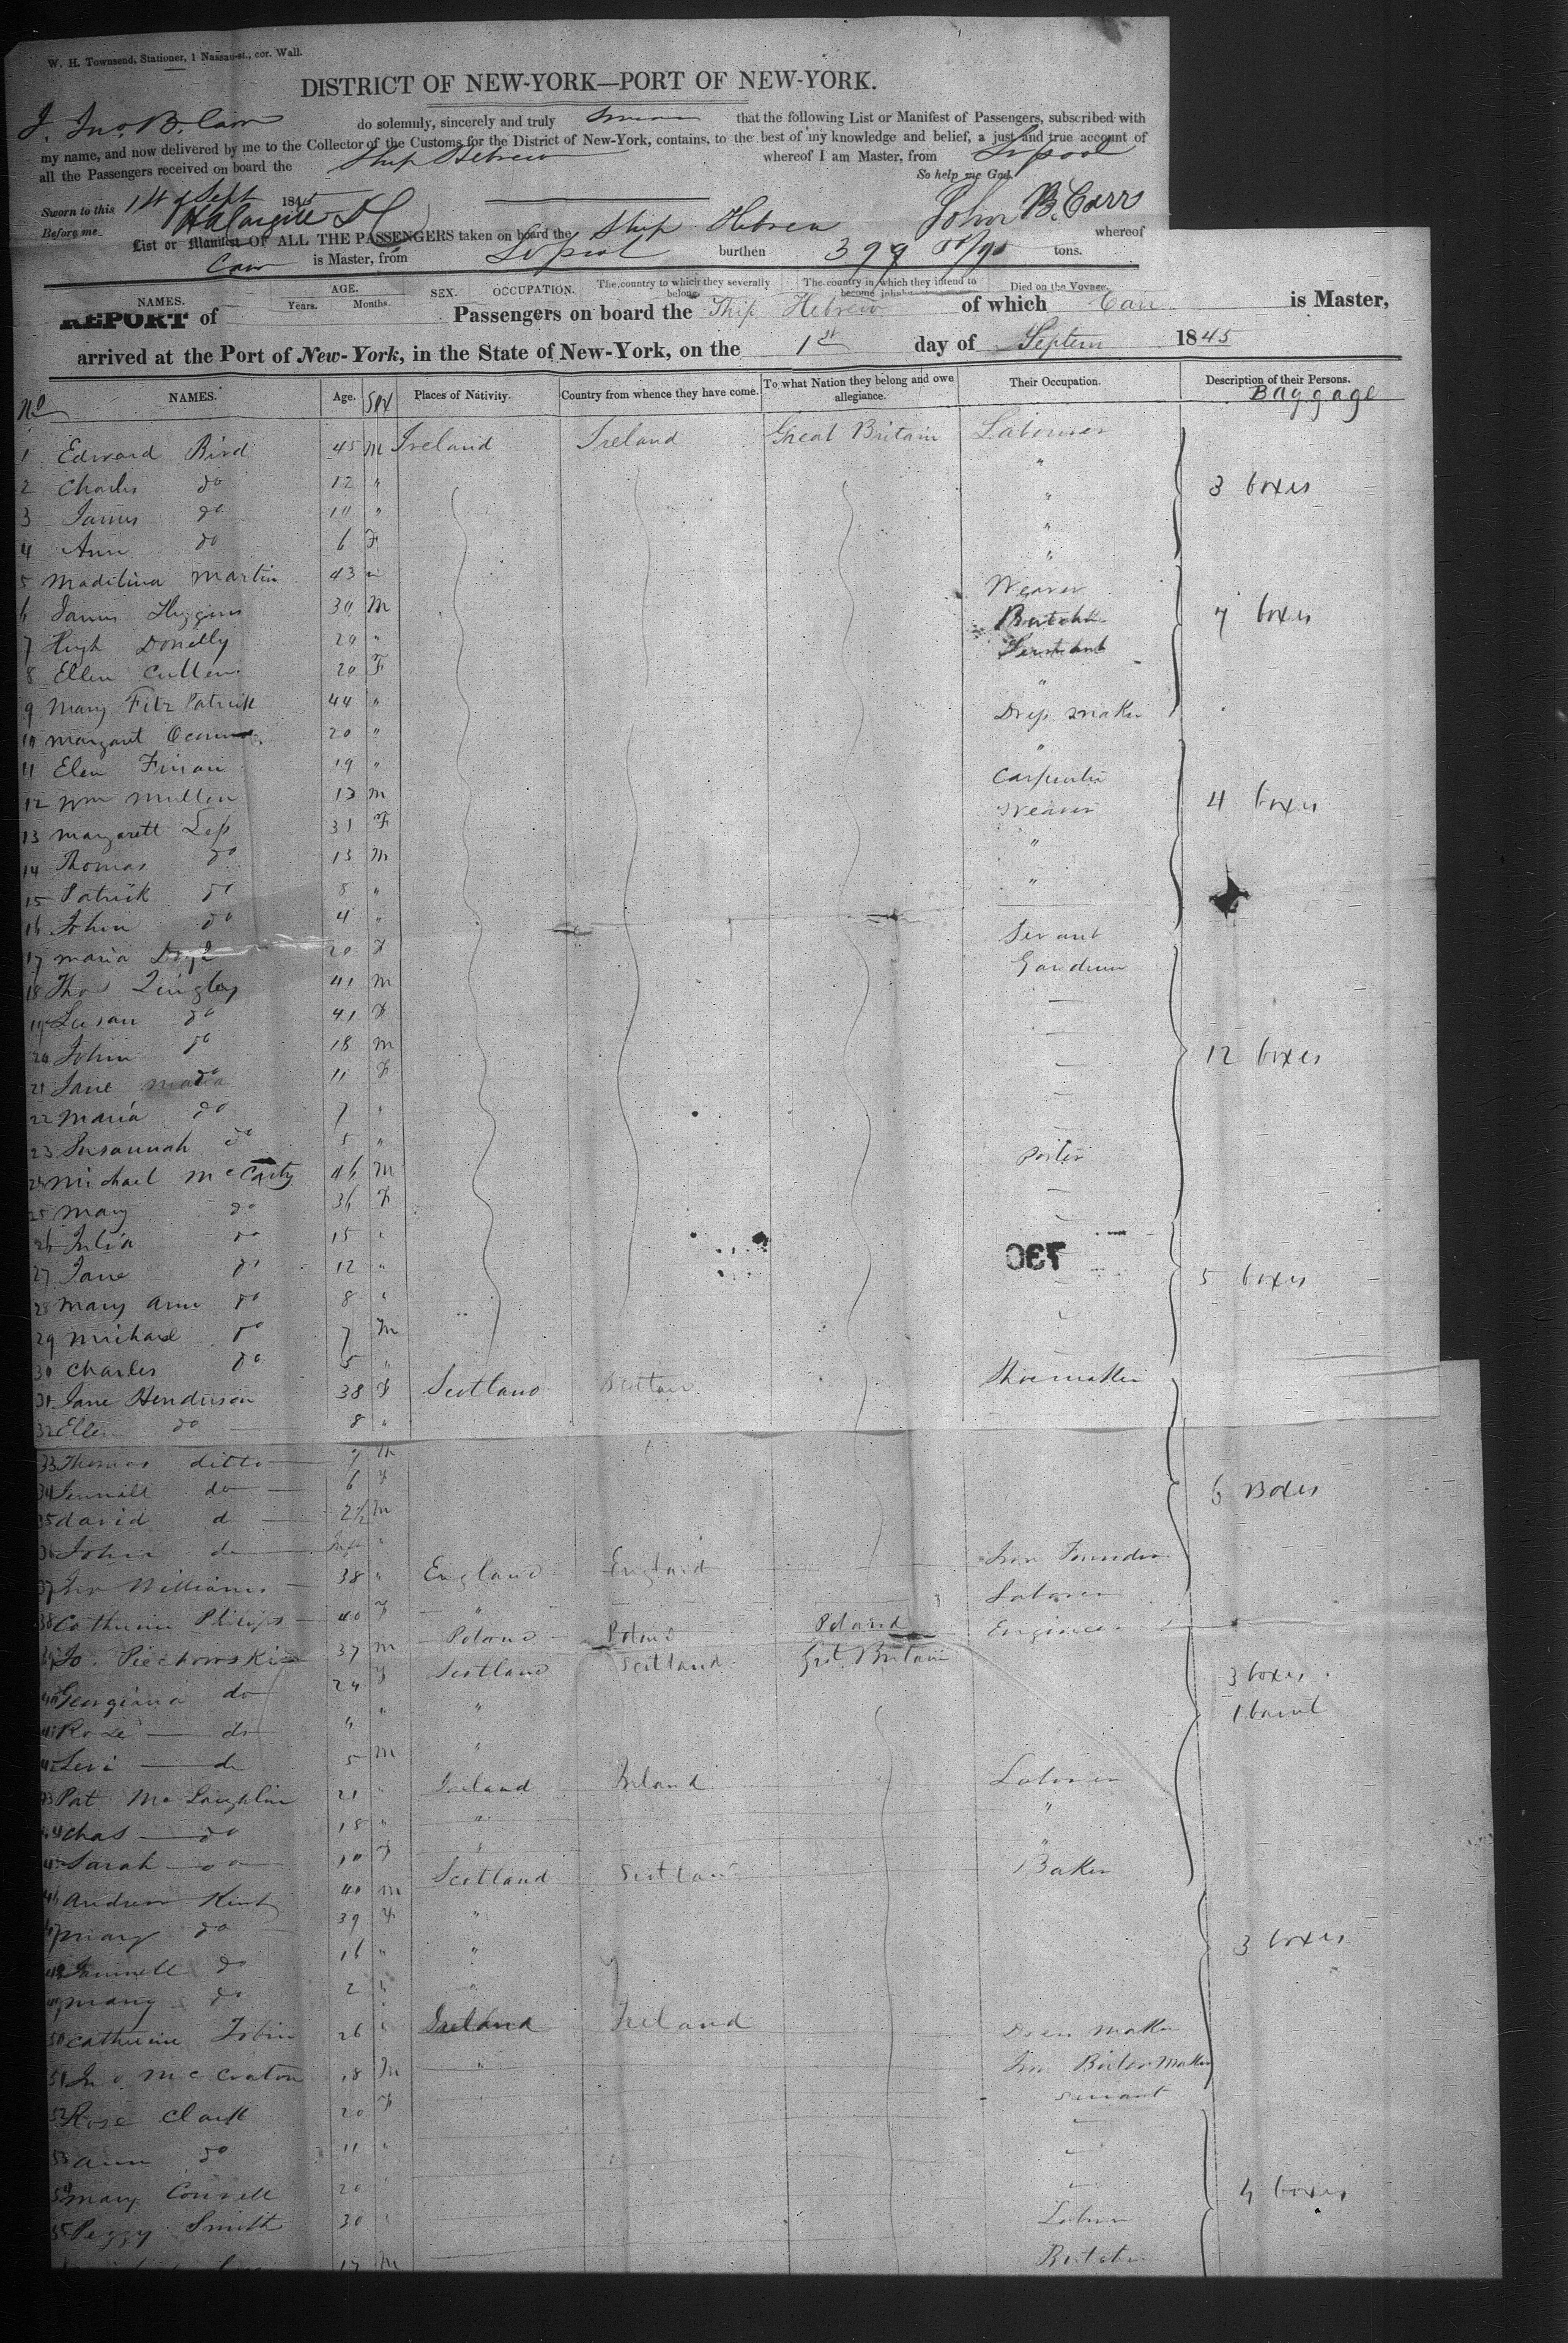 W. H. Townsend, Stationer, 1 Nassau-st., cor. Wall.
DISTRICT OF NEW-YORK—PORT OF NEW-YORK.
I, Jno. B. Carr do solemnly, sincerely and truly swear that the following List or Manifest of Passengers, subscribed with
my name, and now delivered by me to the Collector of the Customs for the District of New-York, contains, to the best of my knowledge and belief, a just and true account of
all the Passengers received on board the Ship Hebrew whereof I am Master, from Lpool
So help me God.
Sworn to this 1st of Sept 1845
Before me John B. Carr
List or Manifest OF ALL THE PASSENGERS taken on board the Ship Hebrew whereof
Carr is Master, from Lpool burthen 399 tons.
NAMES. AGE. Years. Months. SEX. OCCUPATION. The country to which they severally belong. The country in which they intend to become inhabitants. Died on the Voyage.
REPORT of Passengers on board the Ship Hebrew of which Carr is Master,
arrived at the Port of New-York, in the State of New-York, on the 1st day of Septem 1845
No NAMES. Age. Sex Places of Nativity. Country from whence they have come. To what Nation they belong and owe allegiance. Their Occupation. Description of their Persons. Baggage
1 Edward Bird 45 M Ireland Ireland Great Britain Labourer
2 Charles do 12 " " 3 boxes
3 James do 10 " "
4 Ann do 6 F "
5 Madilina Martin 43 "
6 James Higgins 30 M Weaver 7 boxes
7 Hugh Donelly 20 "
8 Ellen Cullen 20 F
9 Mary Fitz Patrick 44 " "
10 Margaret 20 " Dress maker
11 Elen Finan 19 " "
12 Wm Mullen 13 M Carpenter 4 boxes
13 Margarett Less 31 F Weaver
14 Thomas do 13 M "
15 Patrick do 8 " "
16 John do 4 "
17 Maria 20 F Servant
18 Thos 41 M Gardner
19 Susan do 41 F
20 John do 18 M 12 boxes
21 Jane do 11 F
22 Maria do 7 "
23 Susannah do 5 "
24 Michael McCarty 46 M Porter
25 Mary do 36 F
26 Julia do 15 "
27 Jane do 12 " 5 boxes
28 Mary Ann do 8 "
29 Michael do 7 M
30 Charles do 5 "
31 Jane Henderson 38 F Scotland Scotland Shoemaker
32 Ellen do 8 "
33 Thomas ditto 7 M
34 do 6 F 6 Boxes
35 David do 2½ M
36 John do Inft "
37 Jno Williams 38 " England England Iron Founder
38 Catherine Philips 40 F " Laborer
39 Jo. Piechowski 37 M Poland Poland Poland Engineer
40 Georgiana do 24 F Scotland Scotland Grt. Britain 3 boxes
41 Roze do " " " 1 barrel
42 Levi do 5 M "
43 Pat McLaughlin 21 " Ireland Ireland Laborer
44 Chas do 18 " " "
45 Sarah do 10 F " "
46 Andrew 40 M Scotland Scotland Baker
47 Mary do 39 F "
48 do 16 " " 3 boxes
49 Mary do 2 " "
50 Catherine Tobin 26 " Ireland Ireland Dress maker
51 Jno 18 M " Iron Boiler Maker
52 Rose Clark 20 F Servant
53 Ann do 11 "
54 Mary 20 4 boxes
55 Peggy Smith 30 "
17 M